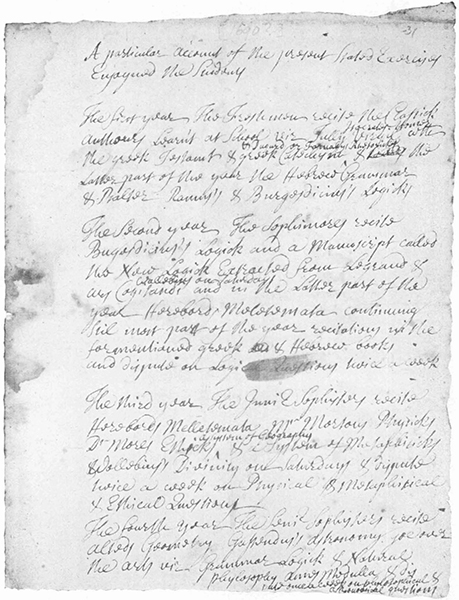 A particular Account of the present Stated Exercises
Enjoyned the Students
The first year The Freshmen recite the Classick
Authours Learn't at School viz Tully, Virgil
the greek Testament & greek Catechism & the
Latter part of the year the Hebrew Grammar
& Psalter Ramus's & Burgesdicius's Logick
The Second year The Sophimores recite
Burgesdicius's Logick and a Manuscript called
the New Logick Extracted from Legrand &
Ars Cogitandi and in the Latter part of the
year Hereboords Meletemata continuing
til most part of the year recitations in the
forementioned greek & Hebrew books
and dispute on Logical Questions twice a week
The third year The Junior Sophisters recite
Hereboords Meletemata, Mr Mortons Physicks
Dr Mores Ethicks, a System of Geography
& a System of Metaphysicks
& Wollebius's Divinity on Saturdays & dispute
twice a week on Physical & Metaphisical
& Ethical Questions
The fourth year The Senior Sophisters recite
Alsteds Geometry Gassendus's Astronomy goe over
the arts viz Grammar Logick & Natural
phylosophy Ames Medulla & dis
once a week on phylosophical &
Astronomical questions